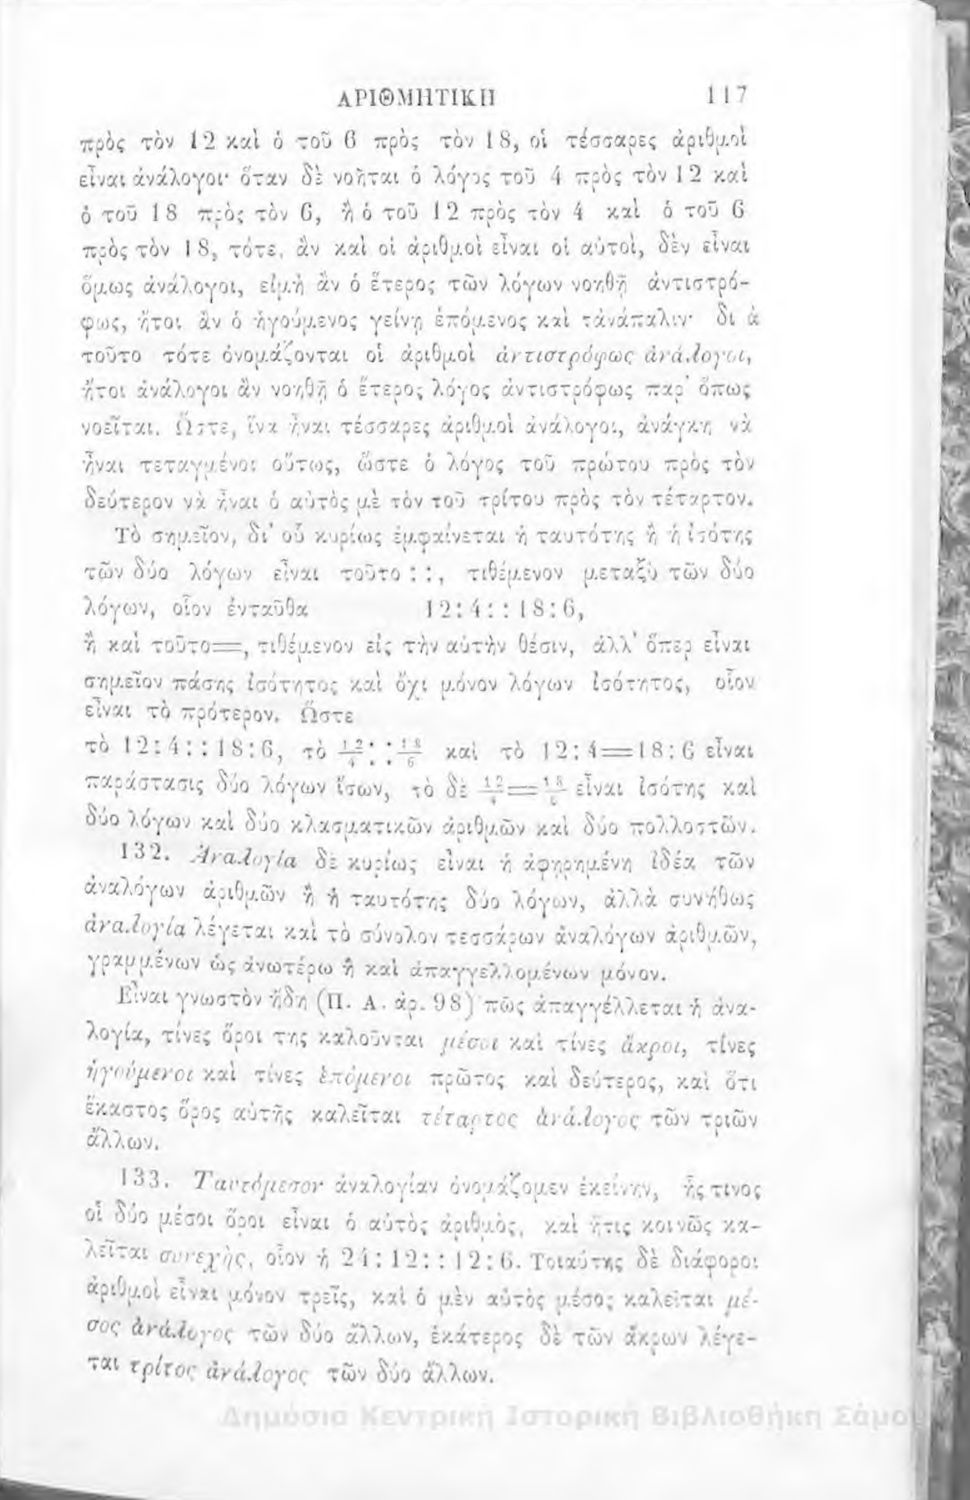 ΑΡΙΘΜΗΤΙΚΗ 117
πρὸς τὸν 12 καὶ ὁ τοῦ 6 πρὸς τὸν 18, οἱ τέσσαρες ἀριθμοὶ
εἶναι ἀνάλογοι· ὅταν δὲ νοῆται ὁ λόγος τοῦ 4 πρὸς τὸν 12 καὶ
ὁ τοῦ 18 πρὸς τὸν 6, ἢ ὁ τοῦ 12 πρὸς τὸν 4 καὶ ὁ τοῦ 6
πρὸς τὸν 18, τότε, ἂν καὶ οἱ ἀριθμοὶ εἶναι οἱ αὐτοὶ, δὲν εἶναι
ὅμως ἀνάλογοι, εἰμὴ ἂν ὁ ἕτερος τῶν λόγων νοηθῇ ἀντιστρό-
φως, ἤτοι ἂν ὁ ἡγούμενος γείνῃ ἑπόμενος καὶ τἀνάπαλιν· δι ἃ
τοῦτο τότε ὀνομάζονται οἱ ἀριθμοὶ ἀντιστρόφως ἀνάλογοι,
ἤτοι ἀνάλογοι ἂν νοηθῇ ὁ ἕτερος λόγος ἀντιστρόφως παρ' ὅπως
νοεῖται. Ὥστε, ἵνα ἦναι τέσσαρες ἀριθμοὶ ἀνάλογοι, ἀνάγκη νὰ
ἦναι τεταγμένοι οὕτως, ὥστε ὁ λόγος τοῦ πρώτου πρὸς τὸν
δεύτερον νὰ ἦναι ὁ αὐτὸς μὲ τὸν τοῦ τρίτου πρὸς τὸν τέταρτον.
Τὸ σημεῖον, δι' οὗ κυρίως ἐμφαίνεται ἡ ταυτότης ἢ ἡ ἰσότης
τῶν δύο λόγων εἶναι τοῦτο : :, τιθέμενον μεταξὺ τῶν δύο
λόγων, οἷον ἐνταῦθα 12 : 4 : : 18 : 6,
ἢ καὶ τοῦτο=, τιθέμενον εἰς τὴν αὐτὴν θέσιν, ἀλλ' ὅπερ εἶναι
σημεῖον πάσης ἰσότητος καὶ ὄχι μόνον λόγων ἰσότητος, οἷον
εἶναι τὸ πρότερον. Ὥστε
τὸ 12 : 4 : : 18 : 6, τὸ 12/4 : : 18/6 καὶ τὸ 12 : 4=18 : 6 εἶναι
παράστασις δύο λόγων ἴσων, τὸ δὲ 12/4=18/6 εἶναι ἰσότης καὶ
δύο λόγων καὶ δύο κλασματικῶν ἀριθμῶν καὶ δύο πολλοστῶν.
132. Ἀναλογία δὲ κυρίως εἶναι ἡ ἀφῃρημένη ἰδέα τῶν
ἀναλόγων ἀριθμῶν ἢ ἡ ταυτότης δύο λόγων, ἀλλὰ συνήθως
ἀναλογία λέγεται καὶ τὸ σύνολον τεσσάρων ἀναλόγων ἀριθμῶν,
γραμμένων ὡς ἀνωτέρω ἢ καὶ ἀπαγγελλομένων μόνον.
Εἶναι γνωστὸν ἤδη (Π. Α. ἀρ. 98) πῶς ἀπαγγέλλεται ἡ ἀνα-
λογία, τίνες ὅροι της καλοῦνται μέσοι καὶ τίνες ἄκροι, τίνες
ἡγούμενοι καὶ τίνες ἑπόμενοι πρῶτος καὶ δεύτερος, καὶ ὅτι
ἕκαστος ὅρος αὐτῆς καλεῖται τέταρτος ἀνάλογος τῶν τριῶν
ἄλλων.
133. Ταυτόμεσον ἀναλογίαν ὀνομάζομεν ἐκείνην, ἧς τινος
οἱ δύο μέσοι ὅροι εἶναι ὁ αὐτὸς ἀριθμὸς, καὶ ἥτις κοινῶς κα-
λεῖται συνεχὴς, οἷον ἡ 24 : 12 : : 12 : 6. Τοιαύτης δὲ διάφοροι
ἀριθμοὶ εἶναι μόνον τρεῖς, καὶ ὁ μὲν αὐτὸς μέσος καλεῖται μέ-
σος ἀνάλογος τῶν δύο ἄλλων, ἑκάτερος δὲ τῶν ἄκρων λέγε-
ται τρίτος ἀνάλογος τῶν δύο ἄλλων.
Δημόσια Κεντρική Ιστορική Βιβλιοθήκη Σάμο